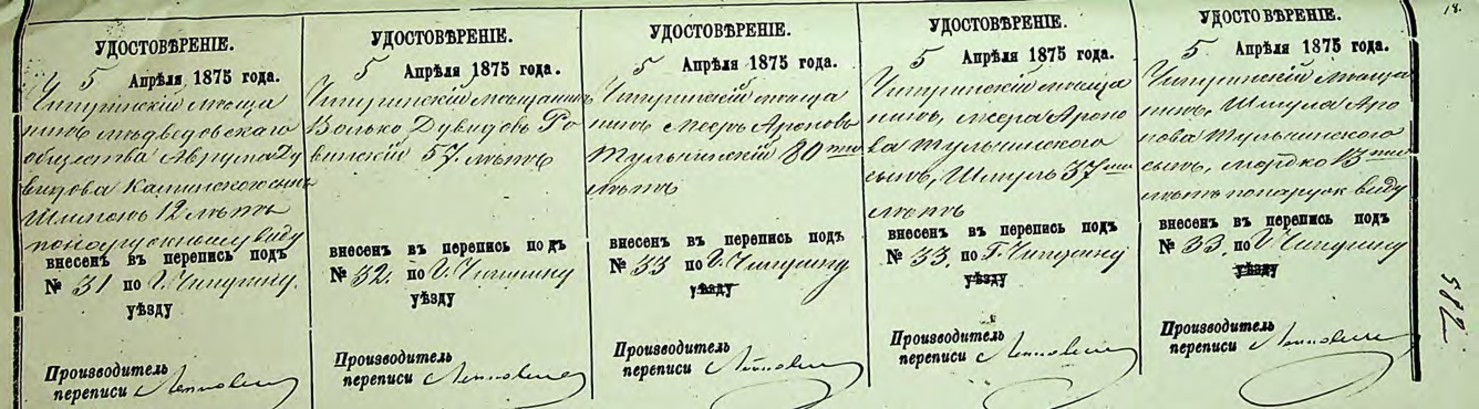 18.
УДОСТОВѢРЕНІЕ.
5 Апрѣля 1875 года.
Чигиринскій мѣща
нинъ Медведовскаго
общества Аврума Ду
видова Каминского сынъ
Шлиюмъ 12 лѣтъ
виду
внесенъ въ перепись подъ
№ 31 по г. Чигирину.
уѣзду
Производитель
переписи
УДОСТОВѢРЕНІЕ.
5 Апрѣля 1875 года.
Чигиринскій мѣщанинъ
Волько Дувидовъ Ро
винскій 57. лѣтъ
внесенъ въ перепись подъ
№ 32. по г. Чигирину
уѣзду
Производитель
переписи
УДОСТОВѢРЕНІЕ.
5 Апрѣля 1875 года.
Чигиринскій мѣща
нинъ Мееръ Ароновъ
Тульчинскій 80 ти
лѣтъ
внесенъ въ перепись подъ
№ 33 по г. Чигирину
уѣзду
Производитель
переписи
УДОСТОВѢРЕНІЕ.
5 Апрѣля 1875 года.
Чигиринскій мѣща
нинъ, Меера Ароно
ва Тульчинского
сынъ, Шмуль 37 ми
лѣтъ
внесенъ въ перепись подъ
№ 33. по г. Чигирину
уѣзду
Производитель
переписи
УДОСТОВѢРЕНІЕ.
5 Апрѣля 1875 года.
Чигиринскій мѣща
нинъ, Шмула Аро
нова Тульчинского
сынъ, Мордко 13 ти
лѣтъ понаруж виду
внесенъ въ перепись подъ
№ 33. по г. Чигирину
уѣзду
Производитель
переписи
582